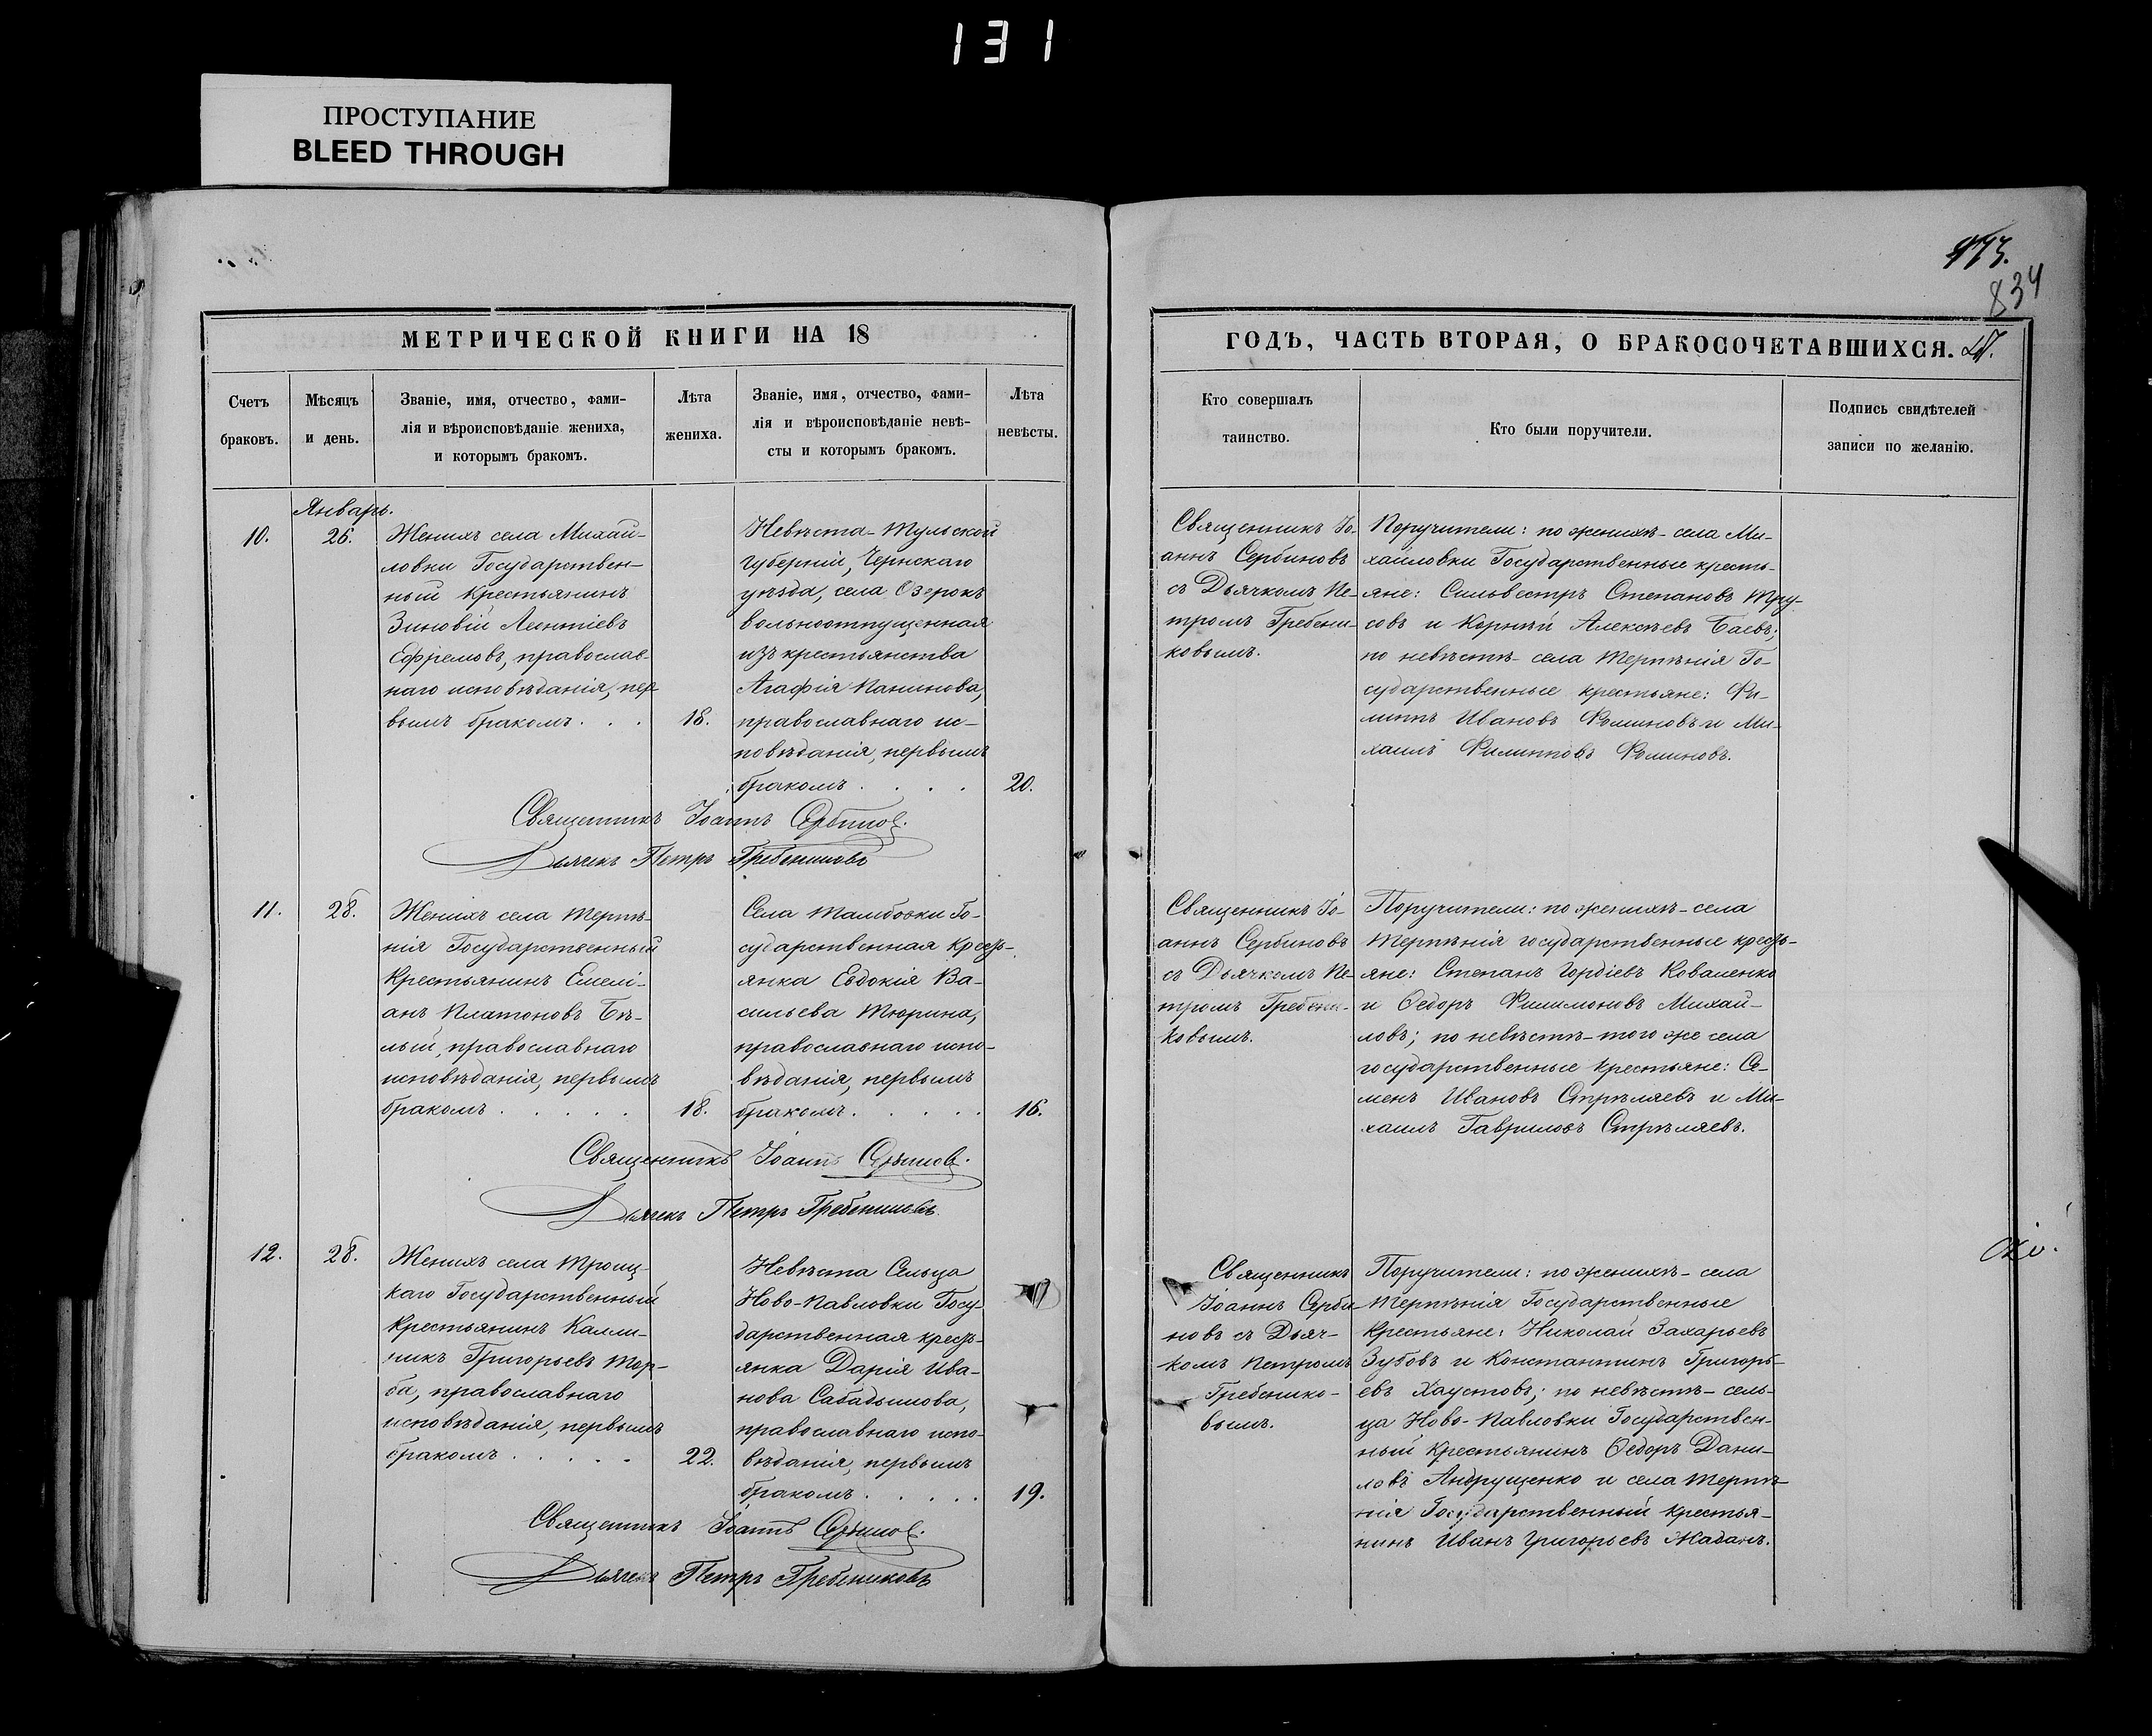 131
ПРОСТУПАНИЕ
BLEED THROUGH
834
МЕТРИЧЕСКОЙ КНИГИ НА 18
Счетъ браковъ.
Мѣсяцъ и день.
Званіе, имя, отчество, фами-
лія и вѣроисповѣданіе жениха,
и которымъ бракомъ.
Лѣта жениха.
Званіе, имя, отчество, фами-
лія и вѣроисповѣданіе невѣ-
сты и которымъ бракомъ.
Лѣта невѣсты.
Январь.
10.
26.
Женихъ села Михай-
ловки Государствен-
ный Крестьянинъ
Зиновій Леонтіевъ
Ефремовъ, православ-
наго исповѣданія, пер
вымъ бракомъ . . .
18.
Невѣста - Тульской
губерніи, Чернскаго
уѣзда, села Озерокъ
вольноотпущенная
изъ крестьянства
Агафія Панинова,
православнаго ис-
повѣданія, первымъ
бракомъ . . . .
20.
Священникъ Іоаннъ Сербинов.
Дьячекъ Петръ Гребениковъ
11.
28.
Женихъ села Терпѣ-
нія Государственный
Крестьянинъ Емелі-
анъ Платоновъ Бѣ-
лый, православнаго
исповѣданія, первымъ
бракомъ . . . . .
18.
Села Тамбовки Го-
сударственная Кресть-
янка Евдокія Ва-
сильева Тюрина,
православнаго испо-
вѣданія, первымъ
бракомъ . . . . .
16.
Священникъ Іоаннъ Сербинов.
Дьячекъ Петръ Гребениковъ.
12.
28.
Женихъ села Троиц-
каго Государственный
Крестьянинъ Калли-
никъ Григорьевъ Тор-
ба, православнаго
исповѣданія, первымъ
бракомъ . . . . .
22.
Невѣста Сельца
Ново-Павловки Госу
дарственная кресть-
янка Дарія Ива-
нова Сабадышова,
православнаго испо-
вѣданія, первымъ
бракомъ . . . . .
19.
Священникъ Іоаннъ Сербинов.
Дьячекъ Петръ Гребениковъ
ГОДЪ, ЧАСТЬ ВТОРАЯ, О БРАКОСОЧЕТАВШИХСЯ.
Кто совершалъ
таинство.
Кто были поручители.
Подпись свидѣтелей
записи по желанію.
Священникъ Іо-
аннъ Сербиновъ
съ Дьячкомъ Пе-
тромъ Гребени-
ковымъ.
Поручители: по женихѣ - села Ми-
хайловки Государственные кресть-
яне: Сильвестръ Степановъ Тру-
совъ и Корнѣй Алексѣевъ Баевъ;
по невѣстѣ - села Терпѣнія Го-
сударственные крестьяне: Фи-
липпъ Ивановъ Фоминовъ и Ми-
хаилъ Филипповъ Фоминовъ.
Священникъ Іо-
аннъ Сербиновъ
съ Дьячкомъ Пе-
тромъ Гребени-
ковымъ.
Поручители: по женихѣ - села
Терпѣнія государственные кресть-
яне: Степанъ Гордіевъ Коваленко
и Ѳедоръ Филимоновъ Михай-
ловъ; по невѣстѣ - того же села
государственные крестьяне: Се-
менъ Ивановъ Стрѣляевъ и Ми-
хаилъ Гавриловъ Стрѣляевъ.
Священникъ
Іоаннъ Серби-
новъ съ Дьяч-
комъ Петромъ
Гребенико-
вымъ.
Поручители: по женихѣ - села
Терпѣнія Государственные
Крестьяне: Николай Захарьевъ
Зубовъ и Константинъ Григорь-
евъ Хаустовъ; по невѣстѣ - сель-
ца Ново-Павловки Государствен-
ный Крестьянинъ Ѳедоръ Дани-
ловъ Андрущенко и села Терпѣ-
нія Государственный крестья-
нинъ Иванъ Григорьевъ Жаданъ.